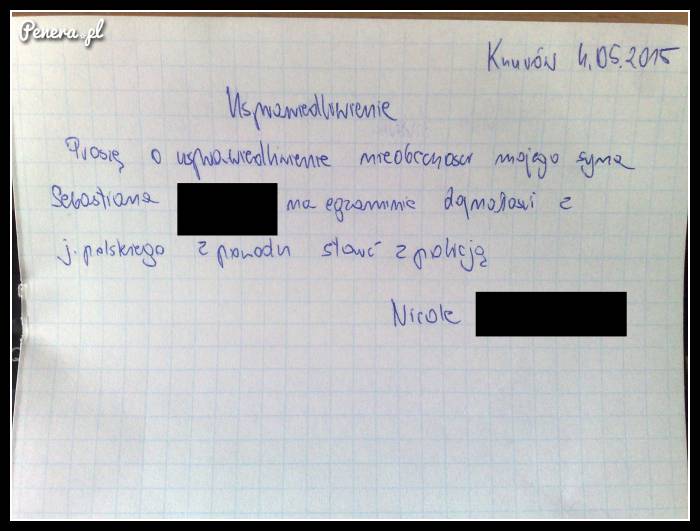 Penera.pl
Knurów 4.05.2015
Usprawiedliwienie
Proszę o usprawiedliwienie nieobecności mojego syna
Sebastiana na egzaminie dojżałosi z
j. polskiego z powodu starć z policją
Nicole